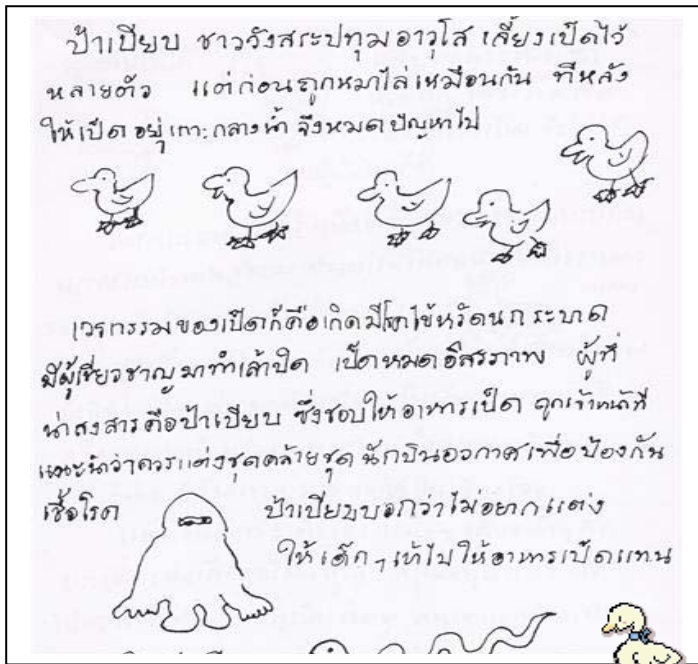 ป้าเปียบ ชาววังสระปทุมอาวุโส เลี้ยงเป็ดไว้
หลายตัว แต่ก่อนถูกหมาไล่เหมือนกัน ทีหลัง
ให้เป็ดอยู่เกาะกลางน้ำ จึงหมดปัญหาไป
เวรกรรมของเป็ดก็คือเกิดมีโรคไข้หวัดนกระบาด
มีผู้เชี่ยวชาญมาทำเล้าปิด เป็ดหมดอิสรภาพ ผู้ที่
น่าสงสารคือป้าเปียบ ซึ่งชอบให้อาหารเป็ด ถูกเจ้าหน้าที่
แนะนำว่าควรแต่งชุดคล้ายชุดนักบินอวกาศเพื่อป้องกัน
เชื้อโรค
ป้าเปียบบอกว่าไม่อยากแต่ง
ให้เด็กๆ เข้าไปให้อาหารเป็ดแทน